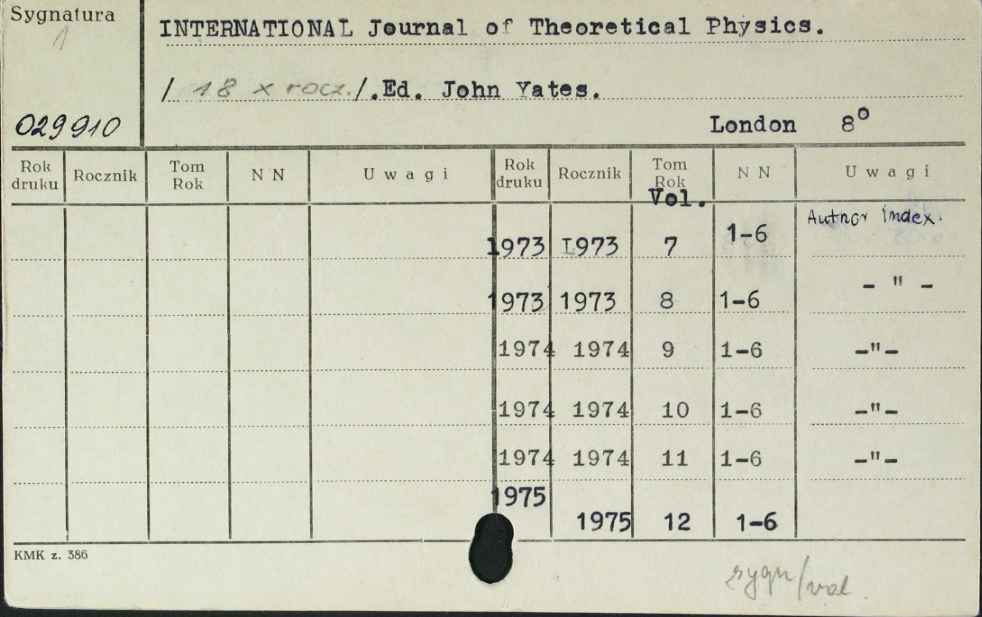 Sygnatura
1
029910
INTERNATIONAL Journal of Theoretical Physics.
/ 18 x rocz. /.Ed. John Yates.
London 8⁰
Rok druku Rocznik Tom Rok N N U w a g i Rok druku Rocznik Tom Rok N N U w a g i
Vol.
1973 1973 7 1-6 Author index.
1973 1973 8 1-6 - " -
1974 1974 9 1-6 -"-
1974 1974 10 1-6 -"-
1974 1974 11 1-6 -"-
1975
1975 12 1-6
KMK z. 386
sygn/vol.